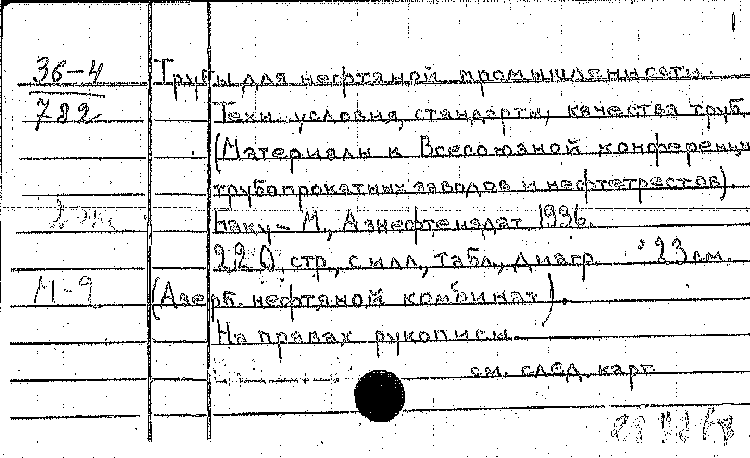 36-4 Трубы для нефтяной промышленности.
782 Техн. условия, стандарты, качества труб
(Материалы к Всесоюзной конференци
трубопрокатных заводов и нефтетрестов)
Баку-М., Азнефтеиздат 1936.
220 стр., с илл., табл., диагр. 23 см.
М-9 (Азерб. нефтяной комбинат).
На правах рукописи.
см. след. карт.